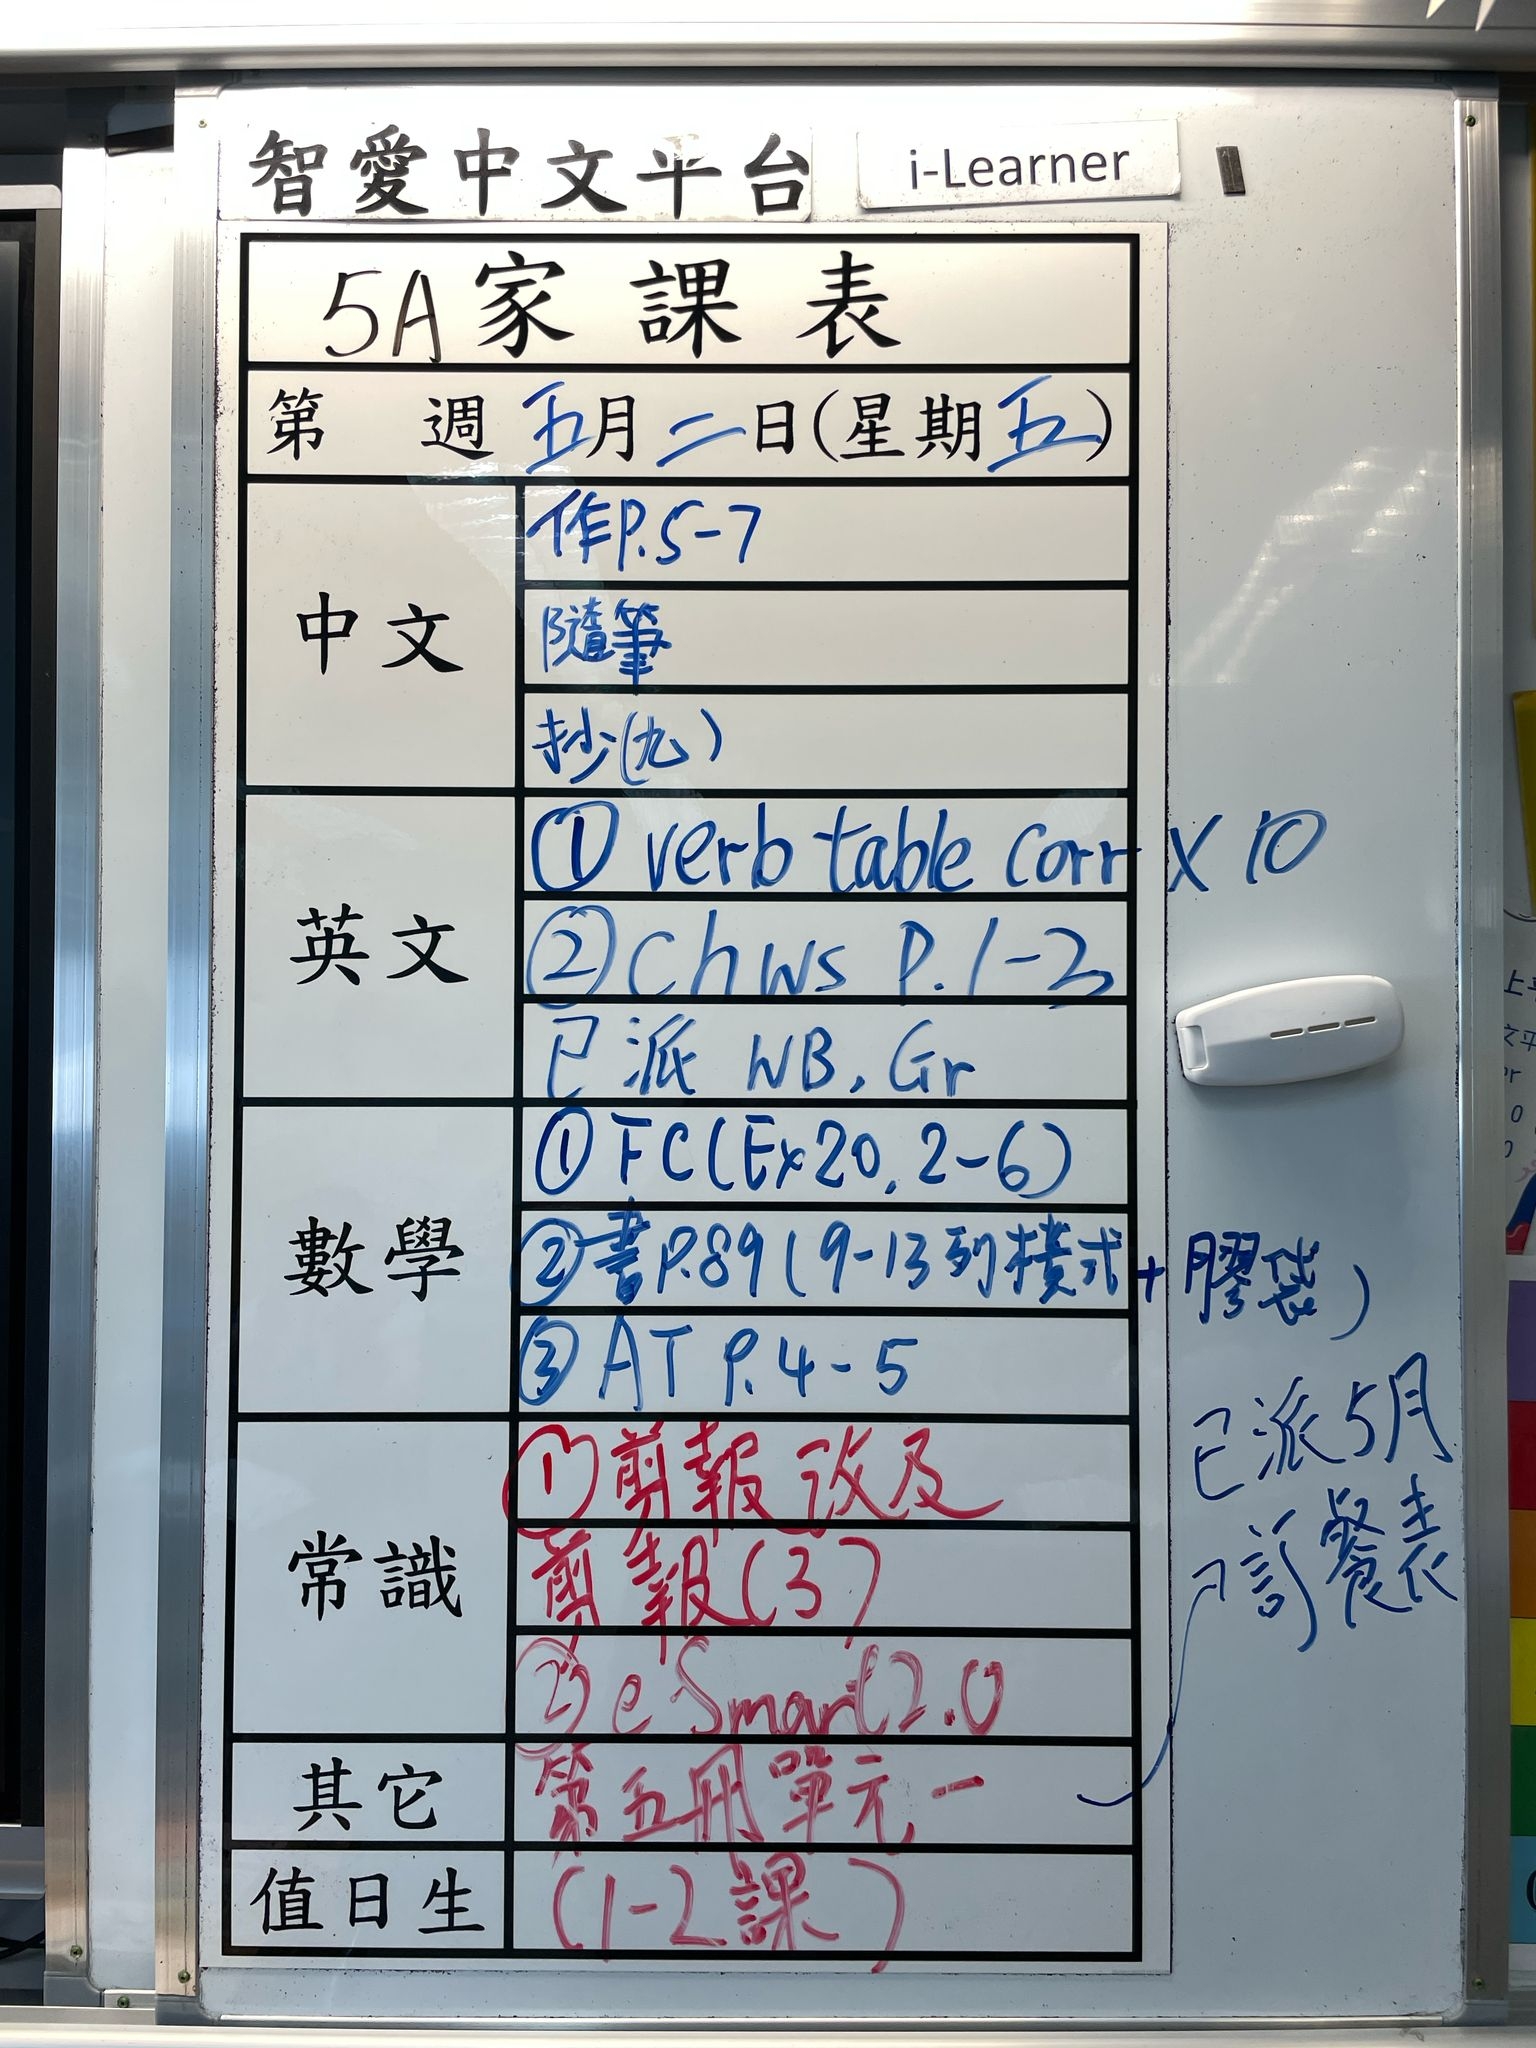 智愛中文平台 i-Learner
5A家課表
第 週 五月二日(星期五)
中文
作P.5-7
隨筆
抄(九)
英文
① verb table corr X 10
② Ch WS P.1-3
已派 WB, Gr
數學
① FC(Ex20, 2-6)
② 書P.89(9-13列橫式+膠袋)
③ AT P.4-5
常識
① 剪報改及
剪報(3)
② eSmart2.0
其它
第五冊單元一
值日生
(1-2課)
已派5月
訂餐表